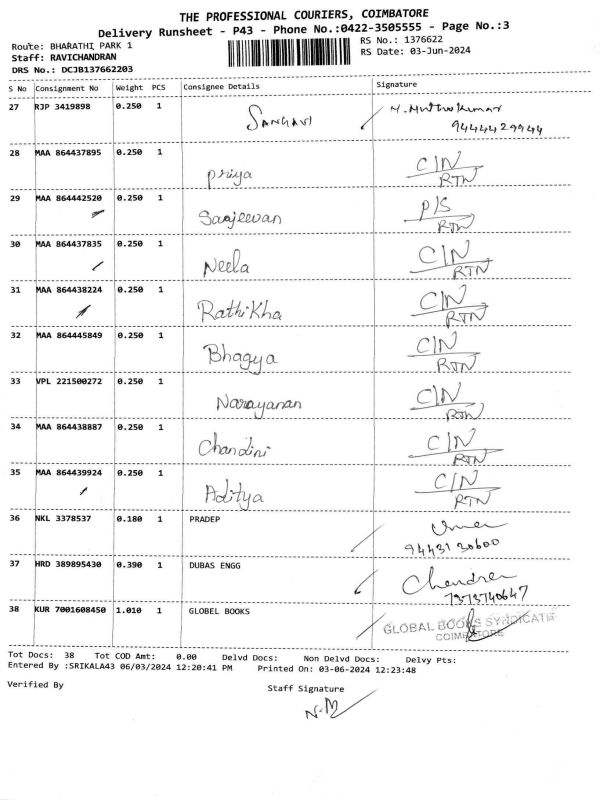 THE PROFESSIONAL COURIERS, COIMBATORE
Delivery Runsheet - P43 - Phone No.:0422-3505555 - Page No.:3
Route: BHARATHI PARK 1
RS No.: 1376622
Staff: RAVICHANDRAN
RS Date: 03-Jun-2024
DRS No.: DCJB137662203
S No Consignment No Weight PCS Consignee Details Signature
27 RJP 3419898 0.250 1 Sangavi M. Muthukumar
9444429944
28 MAA 864437895 0.250 1 Priya C/N
RTN
29 MAA 864442520 0.250 1 Sanjeevan P/S
RTN
30 MAA 864437835 0.250 1 Neela C/N
RTN
31 MAA 864438224 0.250 1 Rathikha C/N
RTN
32 MAA 864445849 0.250 1 Bhagya C/N
RTN
33 VPL 221500272 0.250 1 Narayanan C/N
RTN
34 MAA 864438887 0.250 1 Chandini C/N
RTN
35 MAA 864439924 0.250 1 Aditya C/N
RTN
36 NKL 3378537 0.180 1 PRADEP
9443130600
37 HRD 389895430 0.390 1 DUBAS ENGG Chandran
7373740647
38 KUR 7001608450 1.010 1 GLOBEL BOOKS GLOBAL BOOKS SYNDICATE
COIMBATORE
Tot Docs: 38 Tot COD Amt: 0.00 Delvd Docs: Non Delvd Docs: Delvy Pts:
Entered By :SRIKALA43 06/03/2024 12:20:41 PM Printed On: 03-06-2024 12:23:48
Verified By
Staff Signature